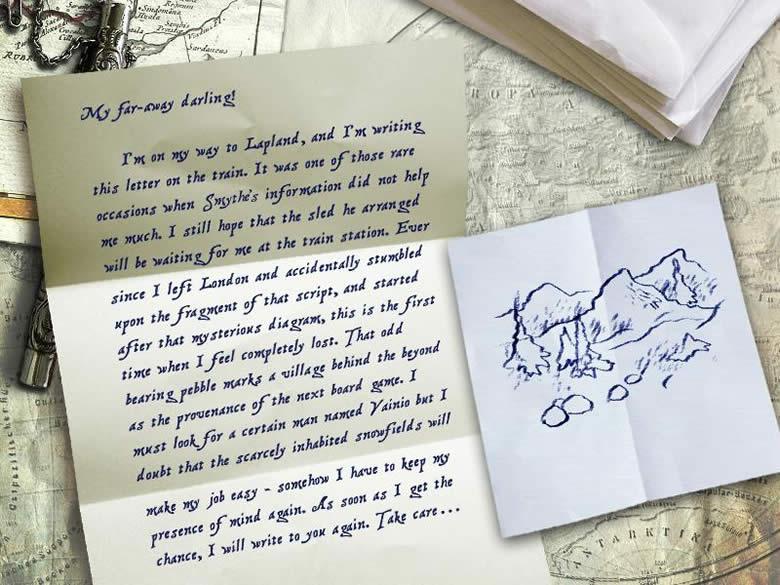 My far-away darling!
I'm on my way to Lapland, and I'm writing
this letter on the train. It was one of those rare
occasions when Smythe's information did not help
me much. I still hope that the sled he arranged
will be waiting for me at the train station. Ever
since I left London and accidentally stumbled
upon the fragment of that script, and started
after that mysterious diagram, this is the first
time when I feel completely lost. That odd
bearing pebble marks a village behind the beyond
as the provenance of the next board game. I
must look for a certain man named Vainio but I
doubt that the scarcely inhabited snowfields will
make my job easy - somehow I have to keep my
presence of mind again. As soon as I get the
chance, I will write to you again. Take care...
ROPA
ANTARKTI